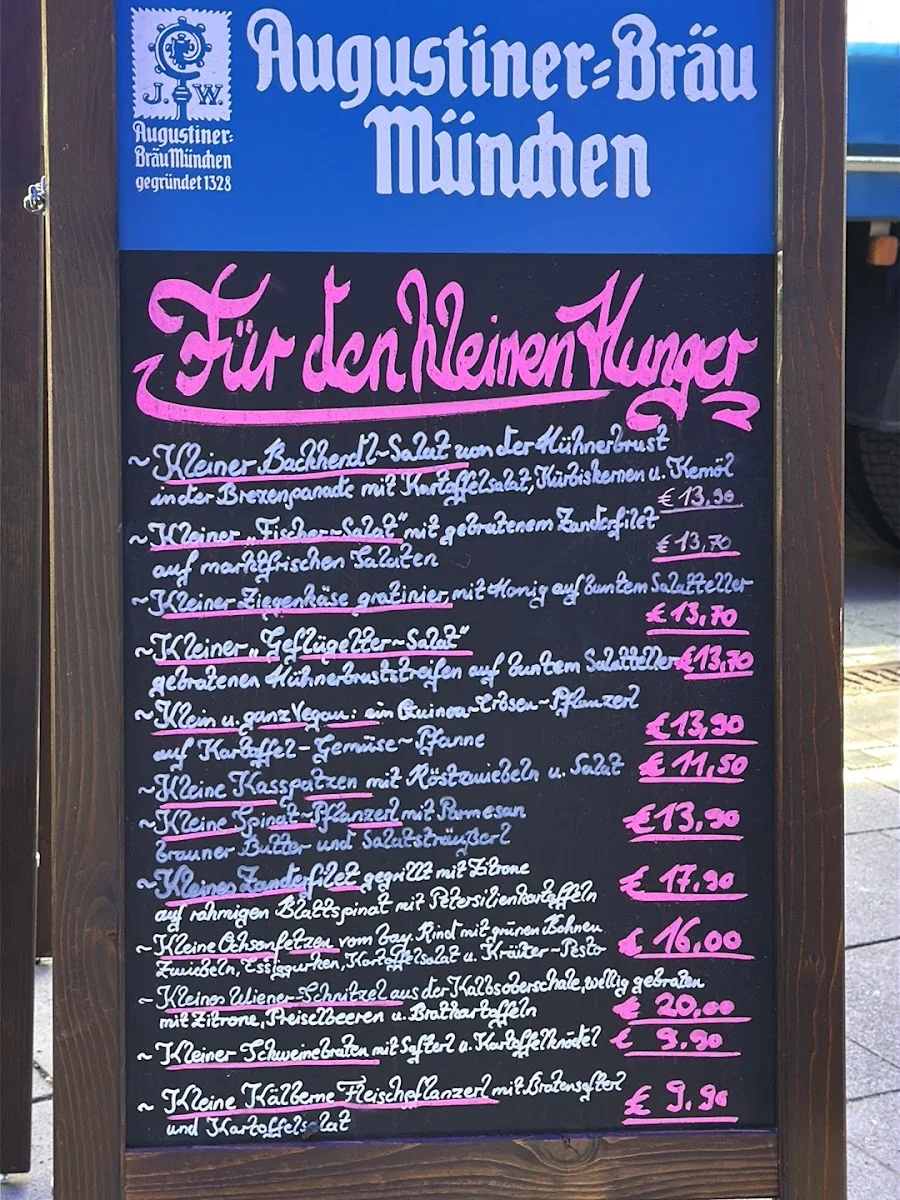 J. W.
Augustiner-
Bräu München
gegründet 1328
Augustiner-Bräu
München
Für den kleinen Hunger
~ Kleiner Backhendl-Salat von der Hühnerbrust
in der Brezenpanade mit Kartoffelsalat, Kürbiskernen u. Kernöl
€ 13,90
~ Kleiner „Fischer-Salat" mit gebratenem Zanderfilet
auf marktfrischen Salaten € 13,70
~ Kleiner Ziegenkäse gratinier mit Honig auf buntem Salatteller
€ 13,70
~ Kleiner „Geflügelter-Salat"
gebratenen Hühnerbruststreifen auf buntem Salatteller €13,70
~ Klein u. ganz Vegan: ein Quinoa-Erbsen-Pflanzerl
auf Kartoffel-Gemüse-Pfanne € 13,90
~ Kleine Kasspatzen mit Röstzwiebeln u. Salat € 11,50
~ Kleine Spinat-Pflanzerl mit Parmesan
brauner Butter und Salatsträußerl €13,90
~ Kleines Zanderfilet gegrillt mit Zitrone
auf rahmigen Blattspinat mit Petersilienkartoffeln € 17,90
~ Kleine Ochsenfetzen vom bay. Rind mit grünen Bohnen
Zwiebeln, Essiggurken, Kartoffelsalat u. Kräuter-Pesto € 16,00
~ Kleines Wiener-Schnitzel aus der Kalbsoberschale, wellig gebraten
mit Zitrone, Preiselbeeren u. Bratkartoffeln € 20,00
~ Kleiner Schweinebraten mit Safterl u. Kartoffelknödel € 9,90
~ Kleine Kälberne Fleischpflanzerl mit Bratensafterl
und Kartoffelsalat € 9,90